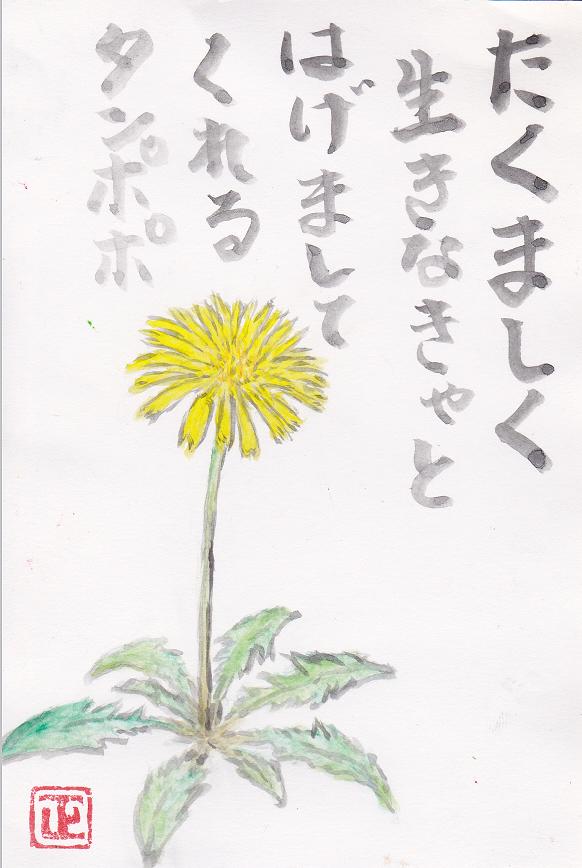 たくましく
生きなきゃと
はげまして
くれる
タンポポ